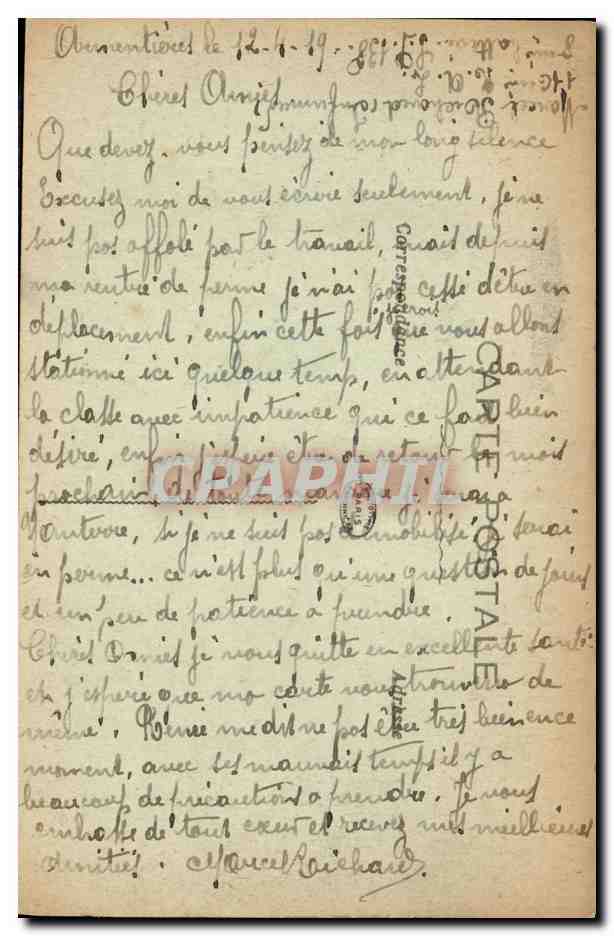 Armentières le 12-4-19.
Chères Amies
Que devez-vous pensez de mon long silence
Excusez moi de vous écrire seulement, je ne
suis pas affolé par le travail, mais depuis
ma rentré de perme je n'ai pas cessé d'être en
déplacement, enfin cette fois je crois que nous allons
stationné ici quelque temp, en attendant
la classe avec impatience qui ce fait bien
désiré, enfin j'espère être de retour le mois
prochain, de tout
Nanterre, si je ne suis pas démobilisé je serai
en perme... ce n'est plus qu'une question de jours
et un peu de patience à prendre.
Chères Amies je vous quitte en excellente santé
et j'espère que ma carte vous trouvera de
même. Rénée me dit ne pas être très bien en ce
moment, avec ses mauvais temps il y a
beaucoup de précautions a prendre. Je vous
embrasse de tout cœur et recevez mes meilleures
amitiés. Marcel Richard
Marcel Richard
S.P. 138
CARTE POSTALE
Correspondance
Adresse
CPAPHIL
PARIS